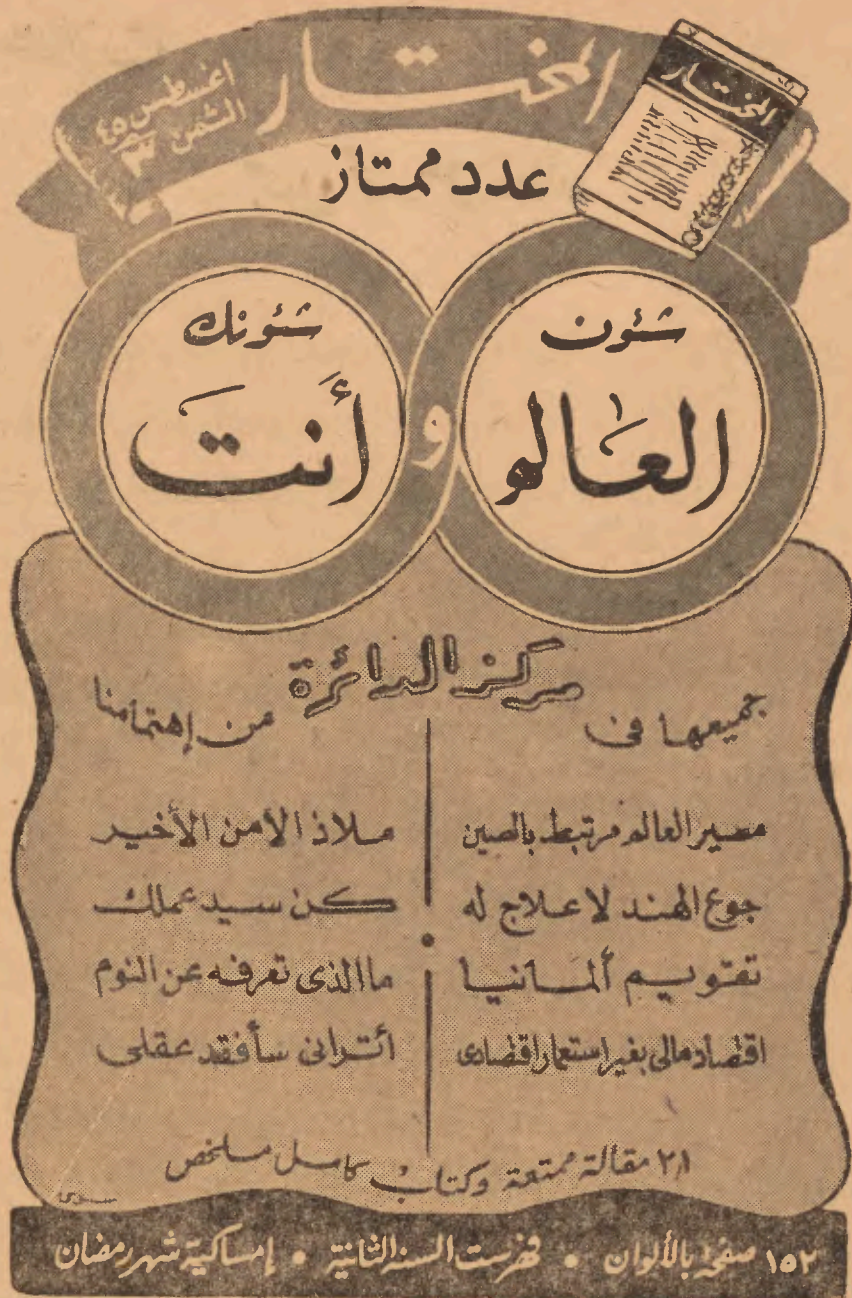 المختار
أغسطس ٤٥
الثمن ٣
المختار
عدد ممتاز
شئون
العالم
و
شئونك
أنت
جميعها في مركز الدائرة من إهتمامنا
مصير العالم مرتبط بالصين
جوع الهند لا علاج له
تقويم ألمانيا
اقتصاد مالى بغير استعمار اقتصادى
ملاذ الأمن الأخير
كن سيد عملك
ما الذى تعرفه عن النوم
أترانى سأفقد عقلى
٢١ مقالة ممتعة وكتاب كامل ملخص
١٥٢ صفحة بالألوان • فهرست السنة الثانية • إمساكية شهر رمضان